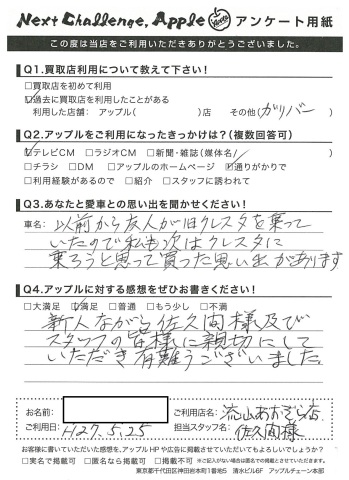 Next Challenge, Apple アンケート用紙
この度は当店をご利用いただきありがとうございました。
Q1.買取店利用について教えて下さい!
□買取を初めて利用
☑過去に買取店を利用したことがある
利用した店舗: アップル( )店 その他(ガリバー )
Q2.アップルをご利用になったきっかけは?(複数回答可)
☑テレビCM □ラジオCM □新聞・雑誌(媒体名 )
□チラシ □DM □アップルのホームページ ☑通りがかりで
□利用経験があるので □紹介 □スタッフに誘われて
Q3.あなたと愛車との思い出を聞かせください!
車名: 以前から友人が旧クレスタを乗って
いたので私も次はクレスタに
乗ろうと思って買った思い出があります
Q4.アップルに対する感想をぜひお書きください!
□大満足 ☑満足 □普通 □もう少し □不満
新人ながら佐久間様及び
スタッフの皆様に親切にして
いただき有難うございました。
お名前:
ご利用店名: 流山おおぞら店
ご利用日: H27.5.25
担当スタッフ名: 佐久間様
お客様に書いていただいた感想を、アップルHPや広告に掲載させていただいてもよろしいでしょうか?
□実名で掲載可 □匿名なら掲載可 □掲載不可 ※ご記入がない場合は匿名での掲載とさせていただきます。
東京都千代田区神田岩本町1番地 清水ビル6F アップルチェーン本部